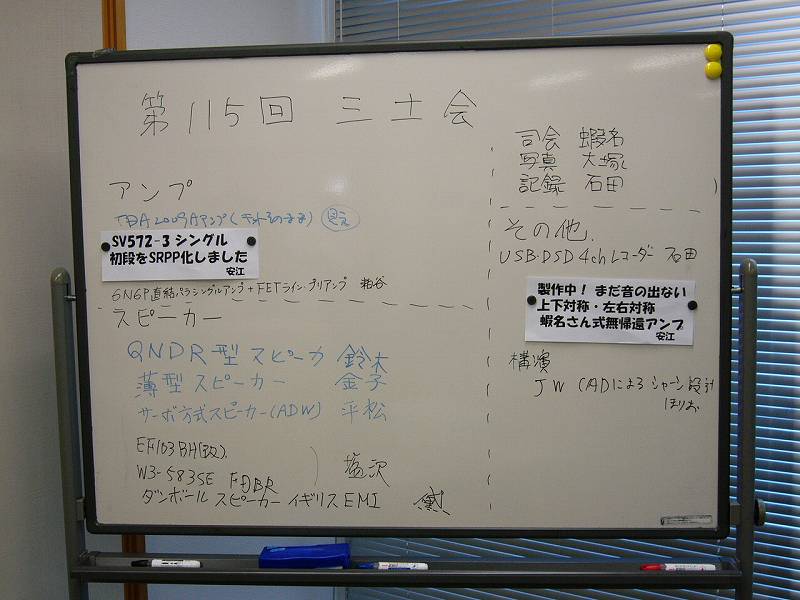 第115回 三土会
アンプ
TDA2009Aアンプ(キットそのまま)
SV572-3 シングル
初段をSRPP化しました
安江
6N6P直結パラシングルアンプ+FETライン・プリアンプ 粕谷
スピーカー
QNDR型スピーカ 鈴木
薄型スピーカー 金子
サーボ方式スピーカー(ADW) 平松
EF103BH(改).
W3-583SE FDBR
塩沢
ダンボール スピーカー イギリス EMI
司会 蝦名
写真 大塚
記録 石田
その他.
USB・DSD 4ch レコーダー 石田
製作中! まだ音の出ない
上下対称・左右対称
蝦名さん式無帰還アンプ
安江
横濱
JW CADによる シャーシ設計